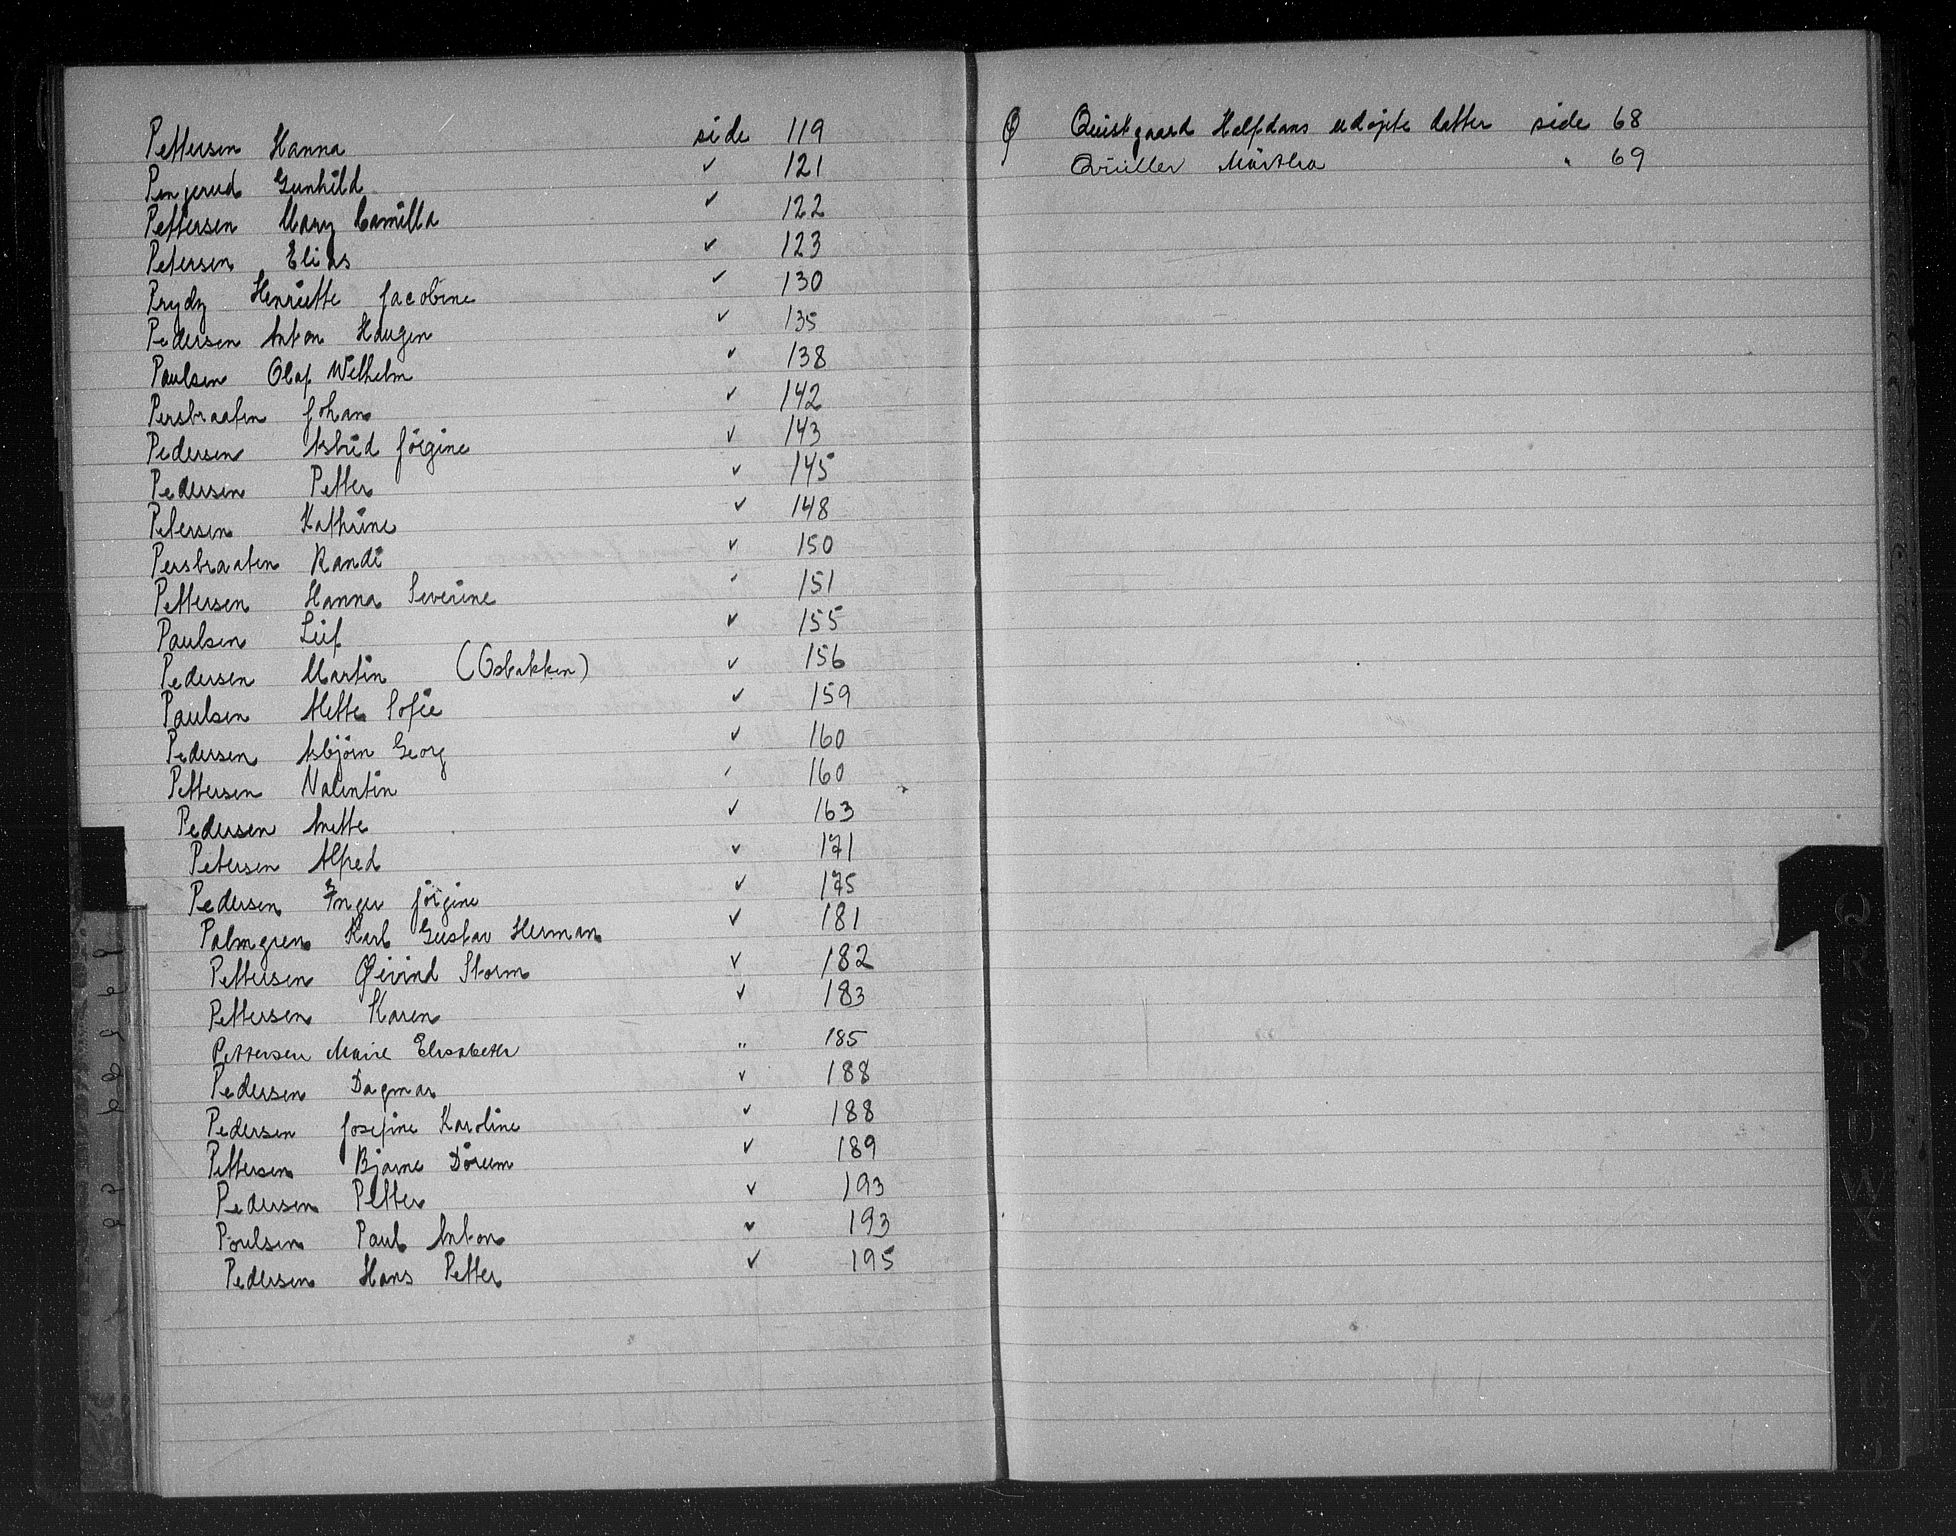 Pettersen Hanna side 119
Pengerud Gunhild ✓ 121
Pettersen Mary Camilla ✓ 122
Petersen Elias ✓ 123
Prydz Henriette Jacobine ✓ 130
Pedersen Anton Haugen ✓ 135
Paulsen Olaf Wilhelm ✓ 138
Persbraaten Johan ✓ 142
Pedersen Astrid Jörgine ✓ 143
Pedersen Petter ✓ 145
Petersen Kathrine ✓ 148
Persbraaten Randi ✓ 150
Pettersen Hanna Severine ✓ 151
Paulsen Leif ✓ 155
Pedersen Martin (Osbakken) ✓ 156
Paulsen Mette Sofie ✓ 159
Pedersen Asbjörn Georg ✓ 160
Pettersen Valentin ✓ 160
Pedersen Anette ✓ 163
Petersen Alfred ✓ 171
Pedersen Inger Jörgine ✓ 175
Palmgren Karl Gustav Herman ✓ 181
Pettersen Øivind Storm ✓ 182
Pettersen Karen ✓ 183
Pettersen Marie Elisabeth " 185
Pedersen Dagmar ✓ 188
Pedersen Josefine Karoline ✓ 188
Pettersen Bjarne Dörum ✓ 189
Pedersen Petter ✓ 193
Poulsen Paul Anton ✓ 193
Pedersen Hans Petter ✓ 195
Q Quistgaard Halfdans udøpte datter side 68
Qviller Märtha " 69
Q
R
S
T
U
W
X
Y